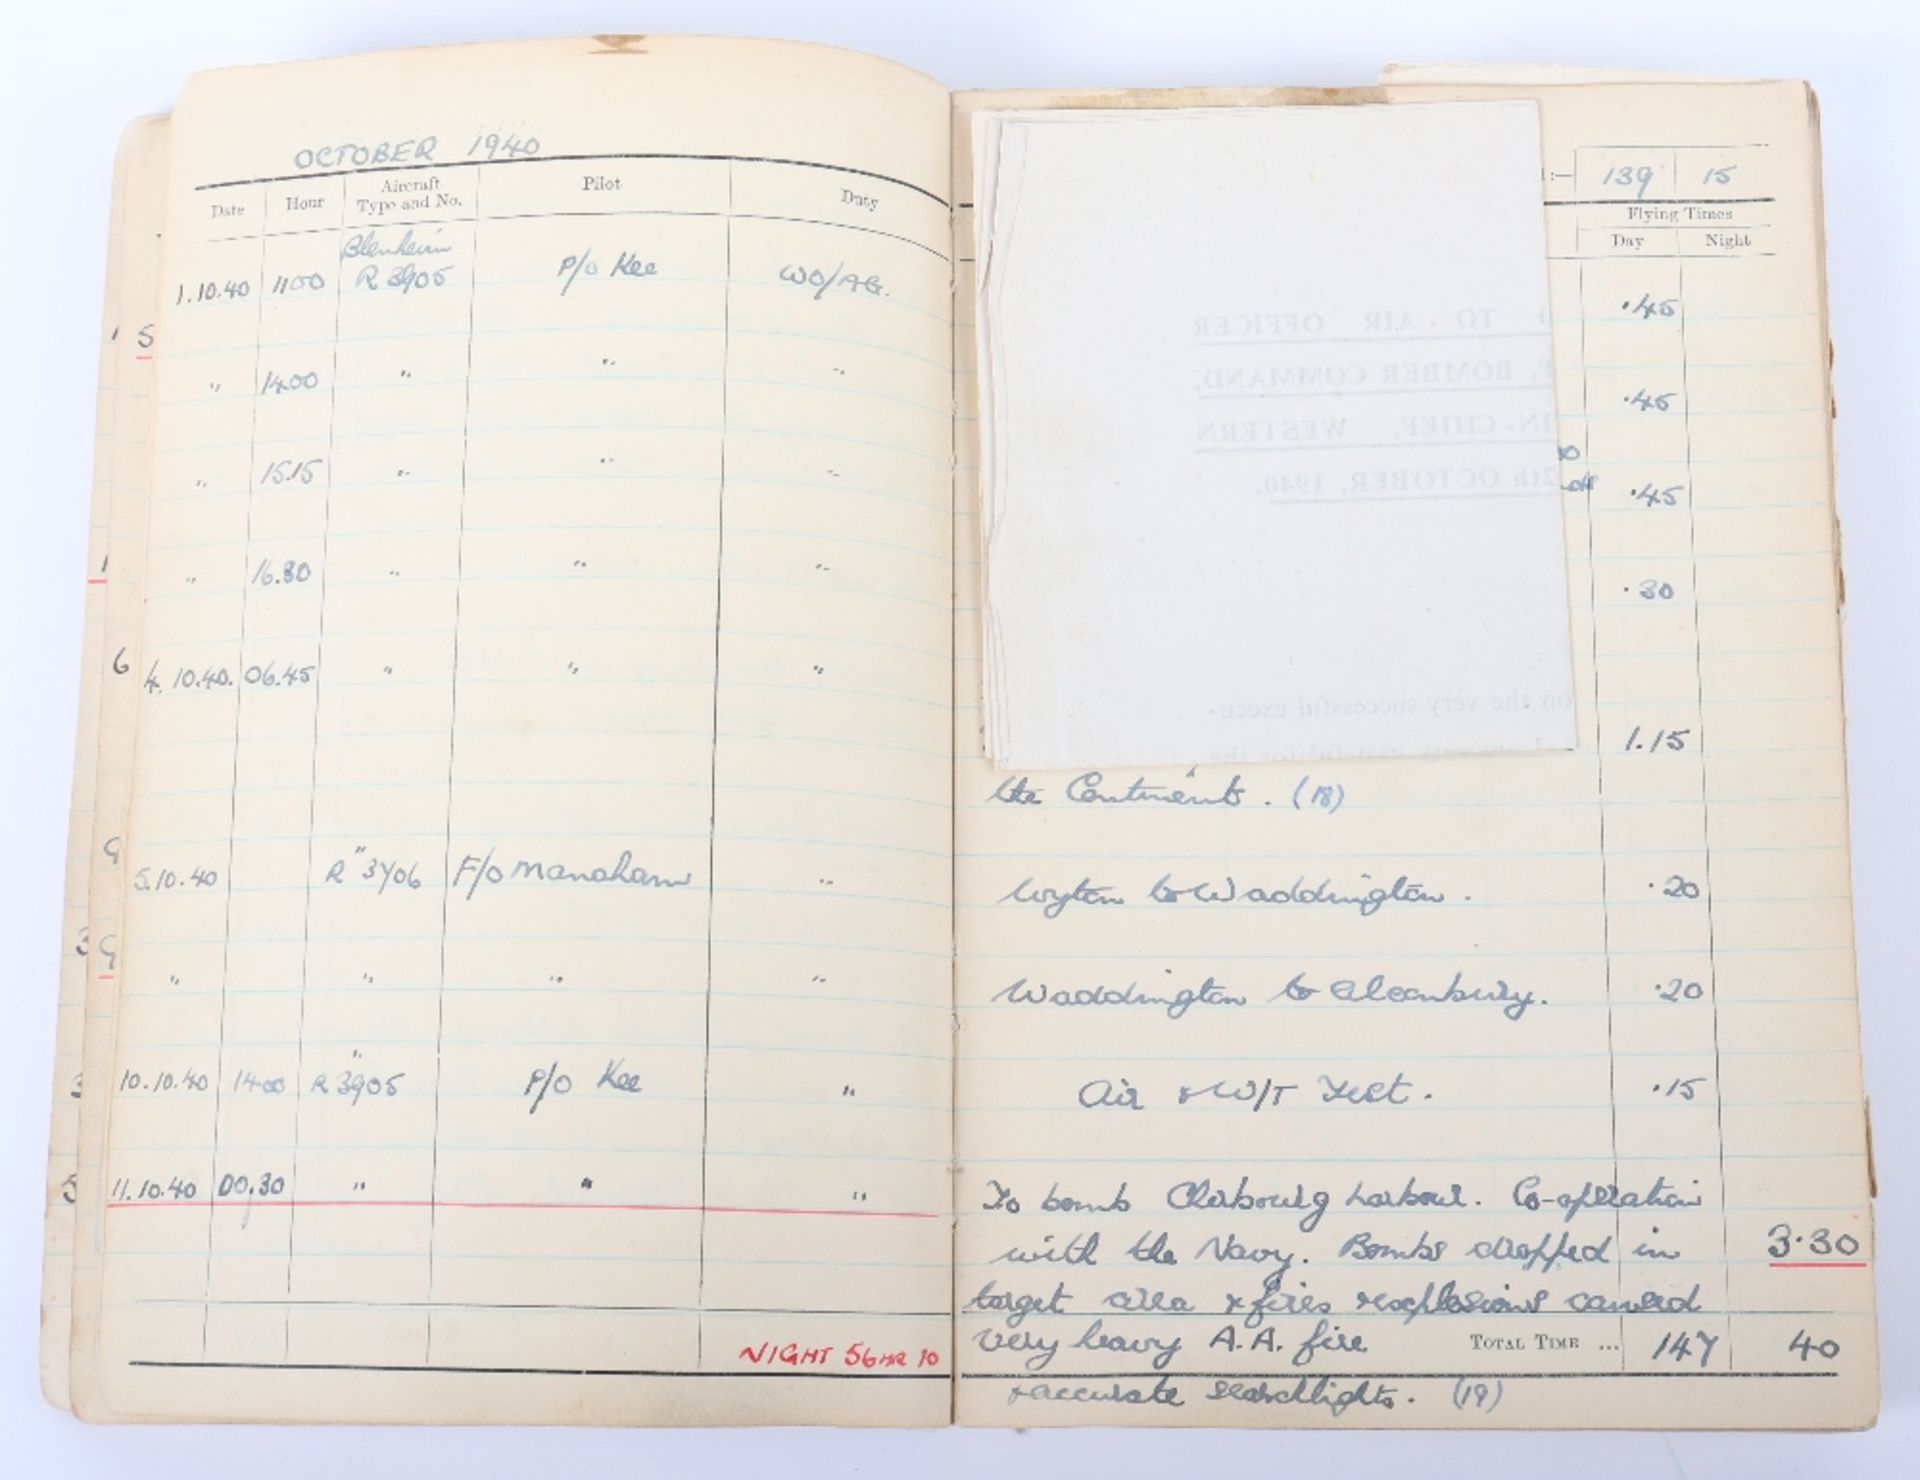 OCTOBER 1940
Date Hour Aircraft Type and No. Pilot Duty
1.10.40 1100 Blenheim R 3905 P/O Kee WO/AG.
" 14.00 " " "
" 15.15 " " "
" 16.30 " " "
4.10.40. 06.45 " " "
5.10.40 " R 3706 F/O Manaham "
" " " "
10.10.40 1400 " R 3905 P/O Kee "
11.10.40 00.30 " " "
NIGHT 56HR 10
:— 139 15
Flying Times
Day Night
.45
.45
.45
.30
1.15
TO AIR OFFICER
F, BOMBER COMMAND,
IN-CHIEF, WESTERN
2th OCTOBER, 1940.
on the very successful execu-
the Continent. (18)
Wyton to Waddington. .20
Waddington to Alconbury. .20
Air & W/T Test. .15
To bomb Cherbourg harbour. Co-operation
with the Navy. Bombs dropped in 3.30
target area & fires & explosions caused
very heavy A.A. fire TOTAL TIME ... 147 40
& accurate searchlights. (19)